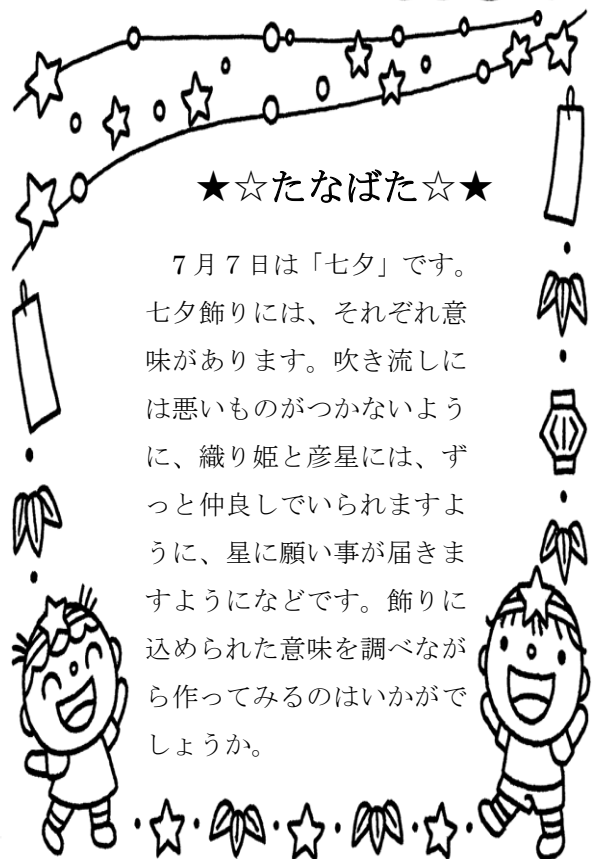 ★☆たなばた☆★
7月7日は「七夕」です。
七夕飾りには、それぞれ意
味があります。吹き流しに
は悪いものがつかないよう
に、織り姫と彦星には、ず
っと仲良しでいられますよ
うに、星に願い事が届きま
すようになどです。飾りに
込められた意味を調べなが
ら作ってみるのはいかがで
しょうか。